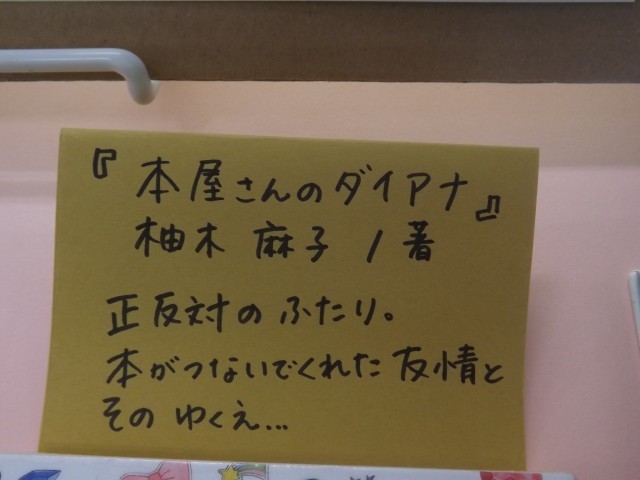 『本屋さんのダイアナ』
柚木 麻子 / 著
正反対のふたり。
本がつないでくれた友情と
そのゆくえ…